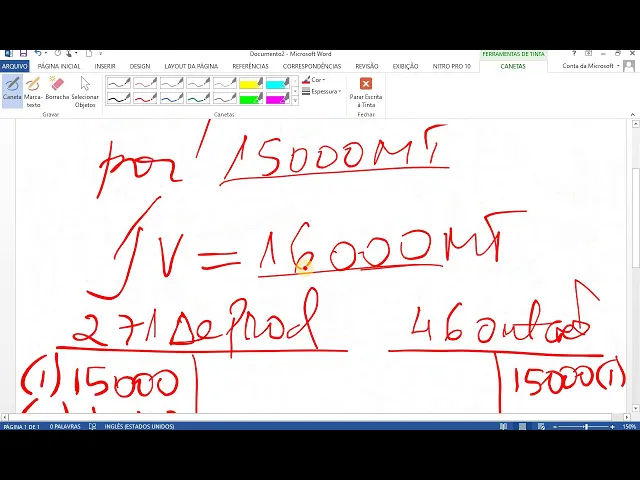 Documento2 - Microsoft Word
FERRAMENTAS DE TINTA
ARQUIVO PÁGINA INICIAL INSERIR DESIGN LAYOUT DA PÁGINA REFERÊNCIAS CORRESPONDÊNCIAS REVISÃO EXIBIÇÃO NITRO PRO 10 CANETAS Conta da Microsoft
Caneta Marca-texto Borracha Selecionar Objetos
Cor
Espessura
Parar Escrita à Tinta
Gravar Canetas Fechar
por 15000MT
V = 16000MT
271 De Prod 46 out
(1) 15000 15000 (1)
PÁGINA 1 DE 1 0 PALAVRAS INGLÊS (ESTADOS UNIDOS) 150%